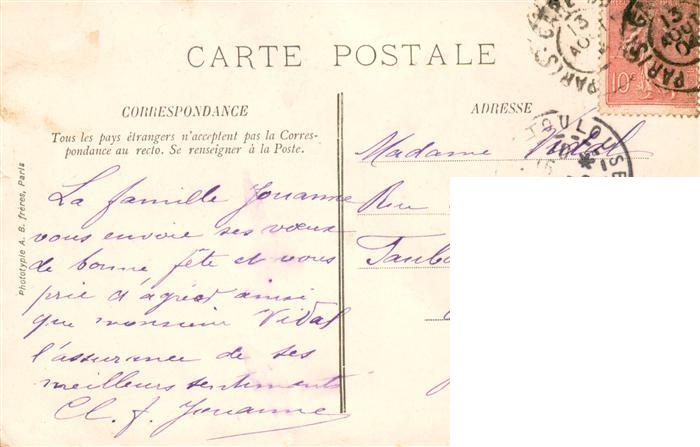 CARTE POSTALE
CORRESPONDANCE
Tous les pays étrangers n'acceptent pas la Corres-
pondance au recto. Se renseigner à la Poste.
La famille Jouanne
vous envoie ses vœux
de bonne fête et vous
prie d'agréer ainsi
que monsieur Vidal
l'assurance de ses
meilleurs sentiments
Cl. f. Jouanne
Phototypie A. B. frères, Paris
ADRESSE
Madame Vidal
Rue
Faubo
10c
PARIS
13
AOUT
PARIS
13
AOUT
TOULOUSE